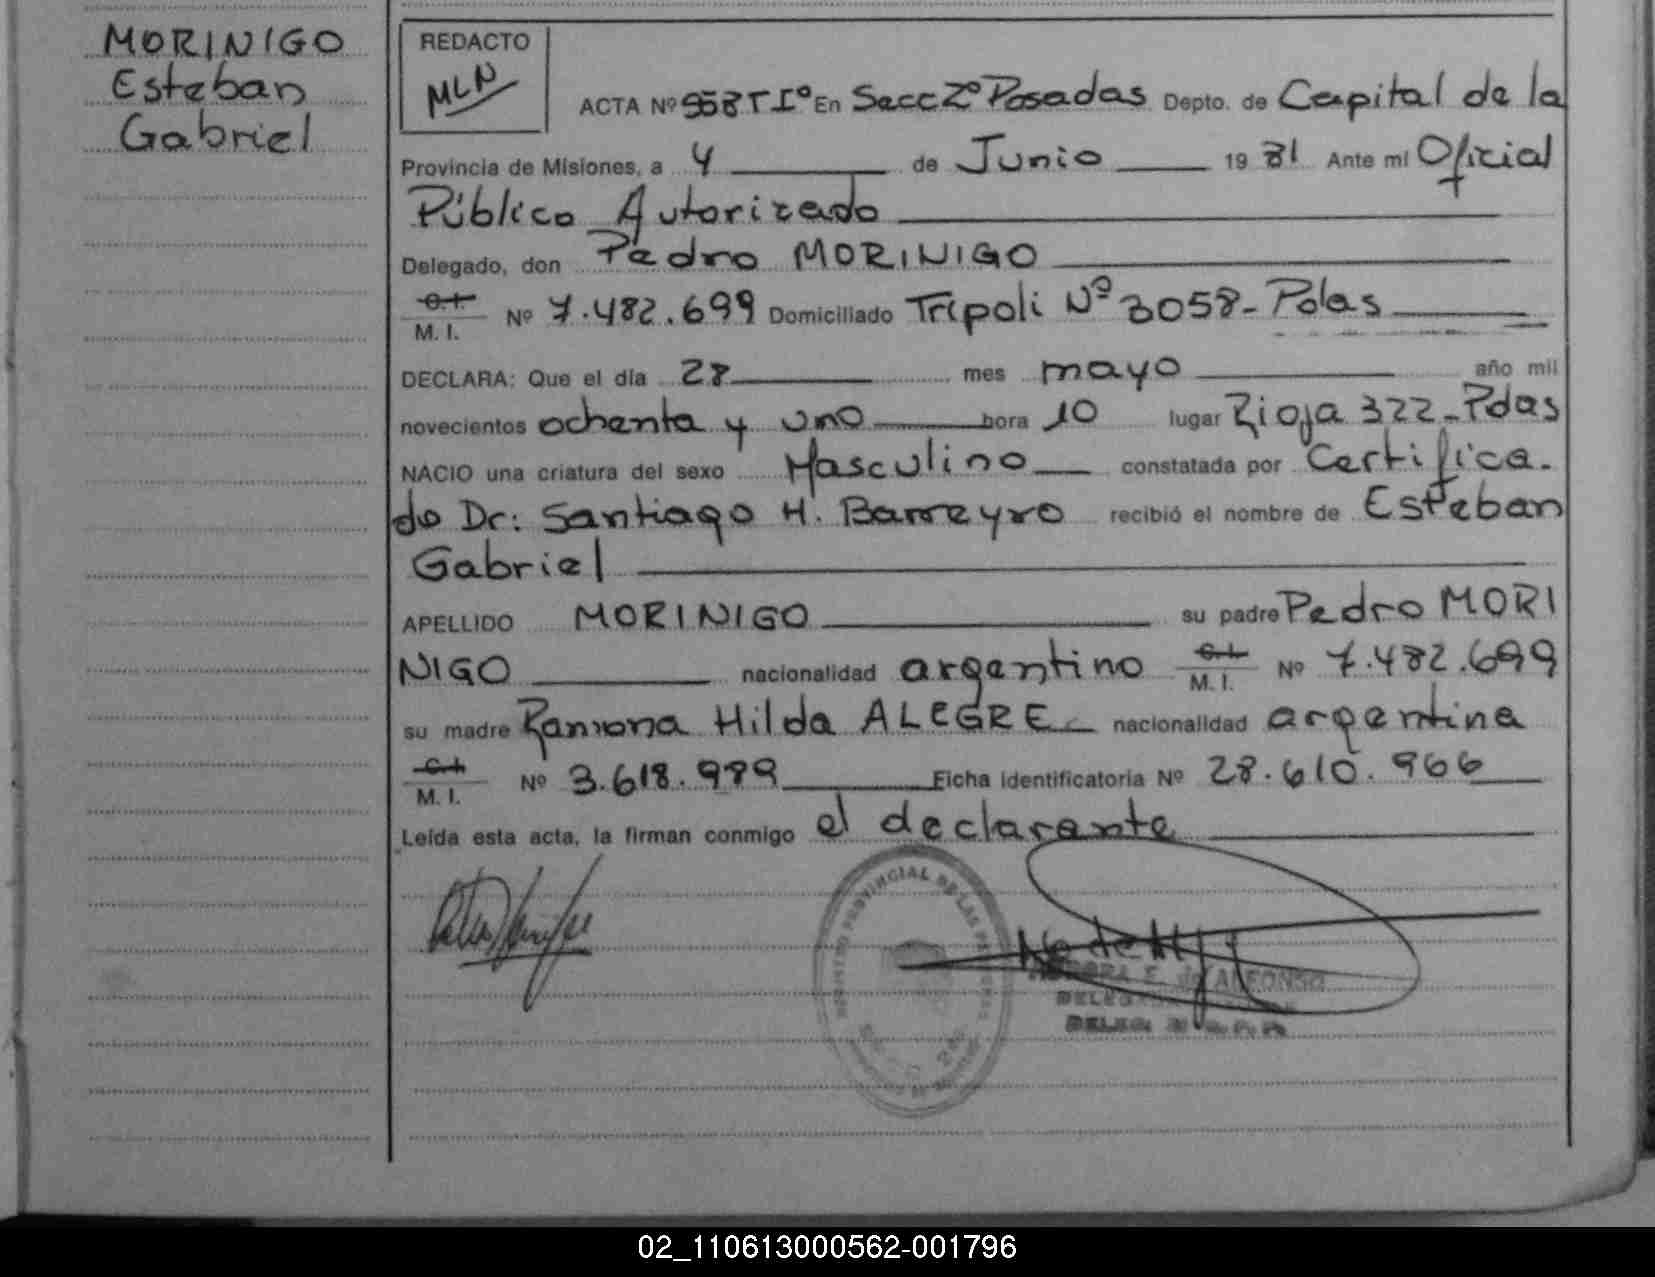 MORINIGO
Esteban
Gabriel
REDACTO
MLN
ACTA Nº 958 T Iº En Secc 2º Posadas Depto. de Capital de la
Provincia de Misiones, a 4 de Junio 19 81 Ante mi Oficial
Público Autorizado
Delegado, don Pedro MORINIGO
C.I.
M. I. Nº 7.482.699 Domiciliado Trípoli Nº 3058- Pdas
DECLARA: Que el día 28 mes mayo año mil
novecientos ochenta y uno hora 10 lugar Rioja 322-Pdas
NACIO una criatura del sexo Masculino constatada por Certifica-
do Dr: Santiago H. Barreyro recibió el nombre de Esteban
Gabriel
APELLIDO MORINIGO su padre Pedro MORI
NIGO nacionalidad argentino C.I. M. I. Nº 7.482.699
su madre Ramona Hilda ALEGRE nacionalidad argentina
C.I.
M. I. Nº 3.618.989 Ficha identificatoria Nº 28.610.966
Leída esta acta, la firman conmigo el declarante
PROVINCIAL DE LAS
E. de ALFONSO
02_110613000562-001796